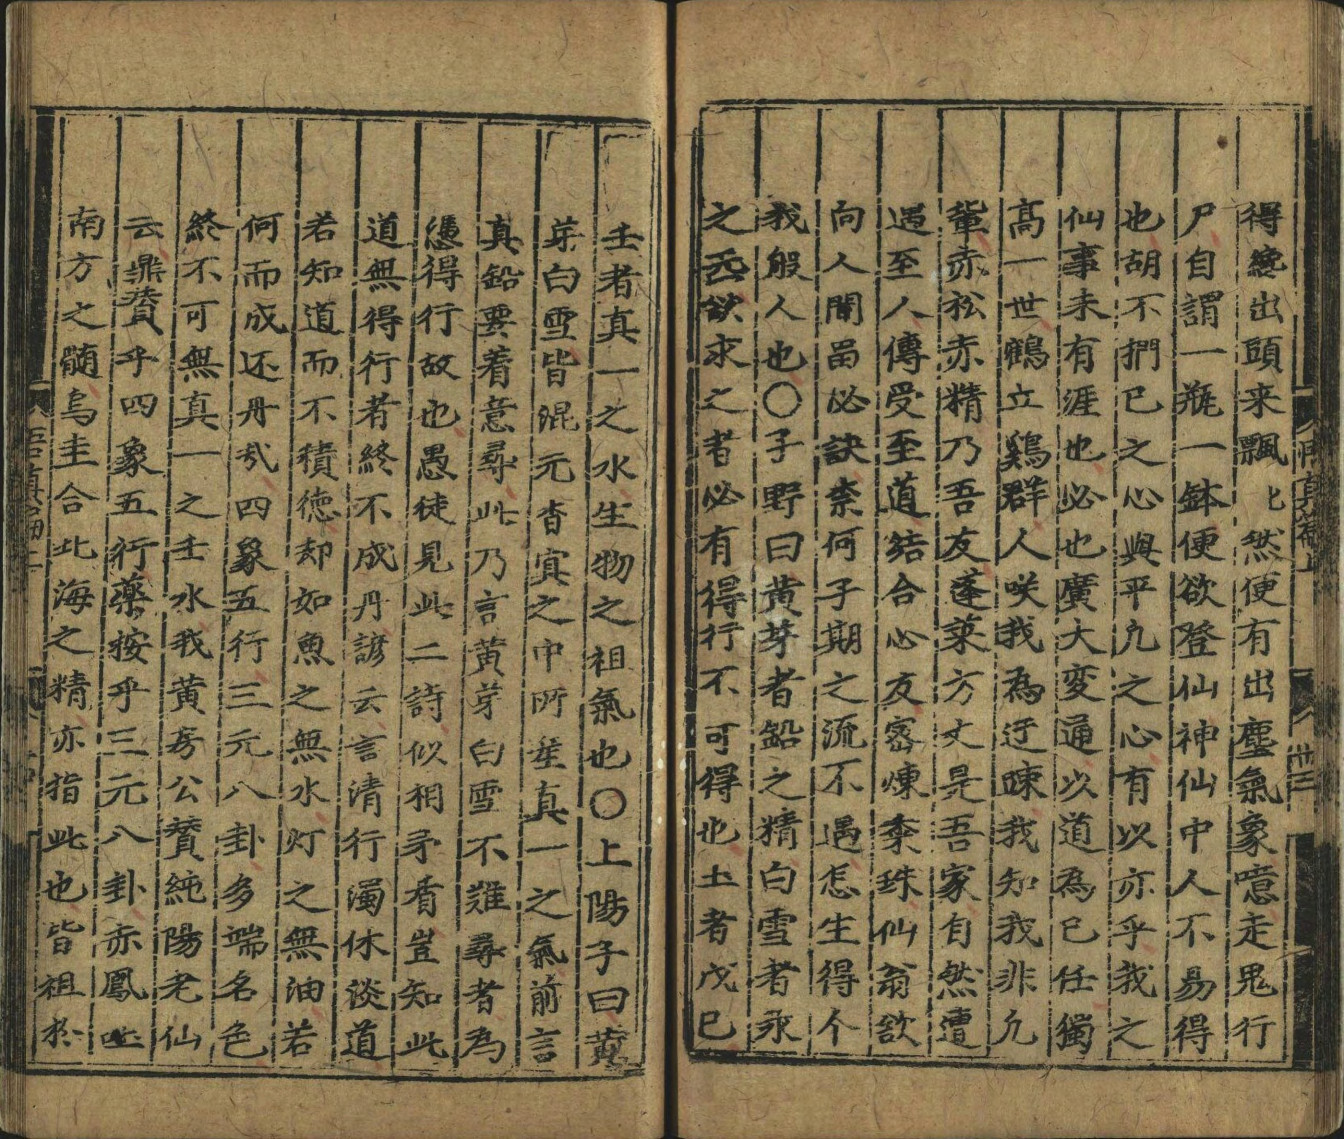 得緫出頭来飄〻然便有出塵氣象噫走鬼行
尸自謂一瓶一鉢便欲登仙神仙中人不易得
也胡不捫己之心與平凢之心有以亦乎我之
仙事未有涯也必也廣大変通以道為己任獨
高一世鶴立鷄群人咲我為迂踈我知我非凢
軰赤松赤精乃吾友蓬萊方丈是吾家自然遭
遇至人傳受至道結合心友宻煉黍珠仙翁欲
向人間留必訣柰何子期之流不遇怎生得个
我般人也〇子野曰黄芽者鉛之精白雪者汞
之炁欲求之者必有得行不可得也土者戊己
壬者真一之水生物之祖氣也〇上陽子曰黄
芽白雪皆混元杳冥之中所產真一之氣前言
真鉛要着意尋此乃言黄芽白雪不難尋者為
憑得行故也愚徒見此二詩似相矛盾豈知此
道無得行者終不成丹諺云言清行濁休談道
若知道而不積德却如魚之無水灯之無油若
何而成还丹㢤四象五行三元八卦多端名色
終不可無真一之壬水我黄房公賛純陽老仙
云鼎賛乎四象五行藥按乎三元八卦赤鳳
南方之髓烏圭合北海之精亦指此也皆祖於